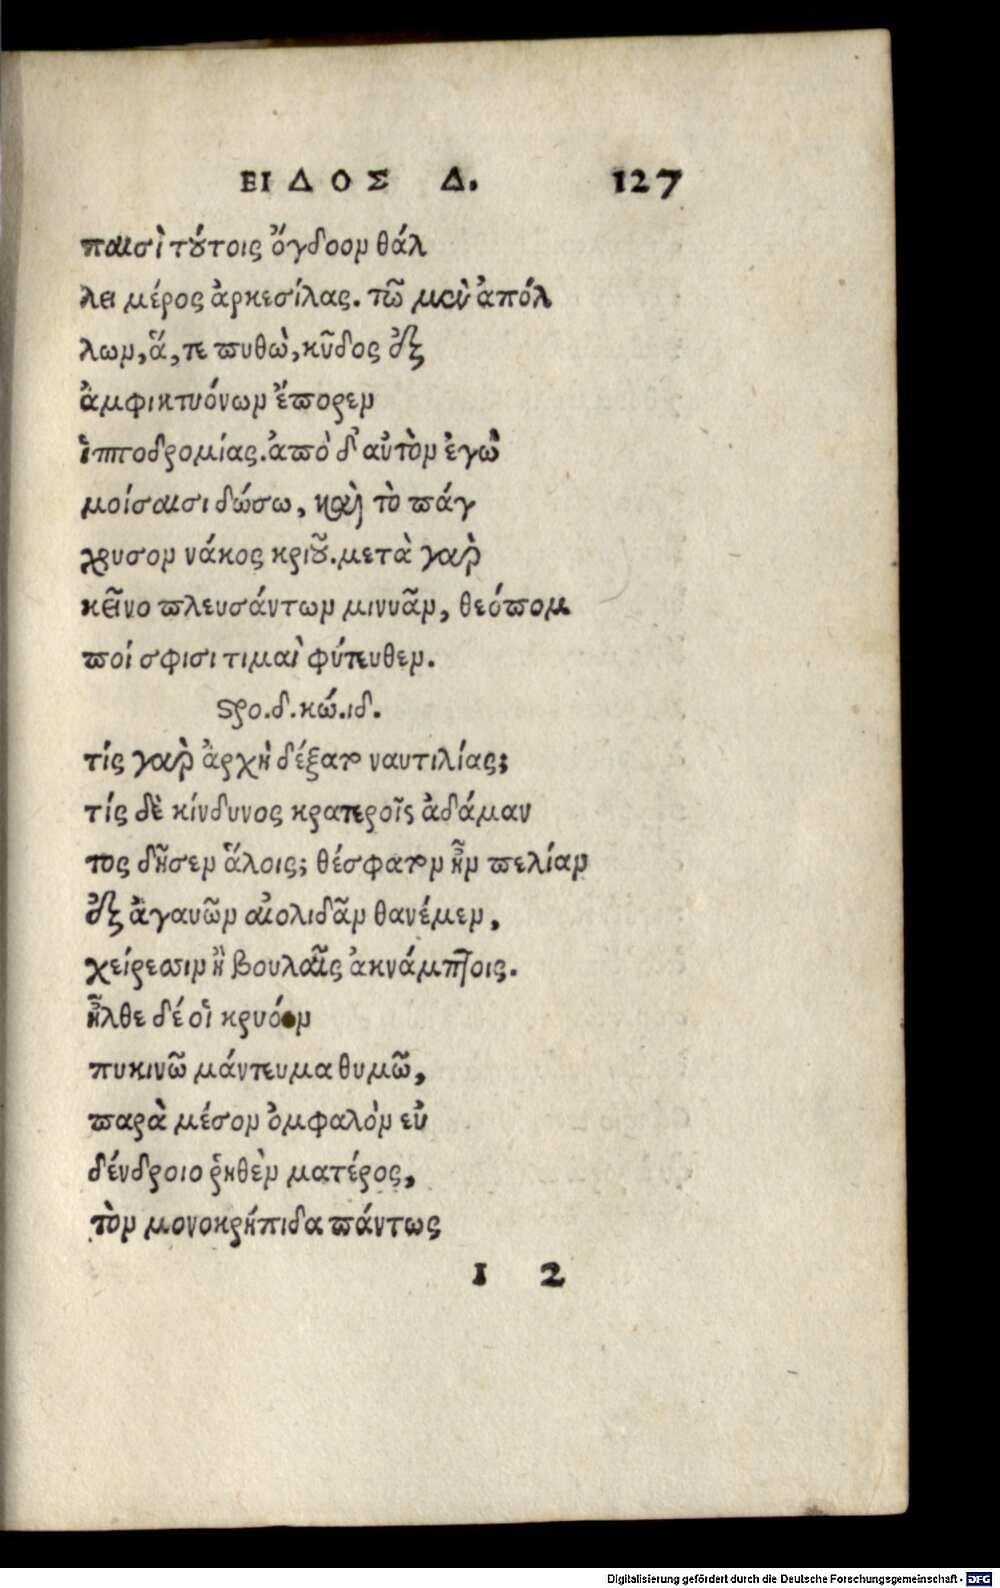 ΕΙΔΟΣ Δ. 127
παισὶ τούτοις ὄγδοον θάλ
λει μέρος ἀρκεσίλας. τῶ μὲν ἀπόλ
λων, ἅ, τε πυθὼ, κῦδος ἐξ
ἀμφικτυόνων ἔπορεν
ἱπποδρομίας. ἀπὸ δ' αὐτὸν ἐγὼ
μοίσαισι δώσω, καὶ τὸ πάγ
χρυσον νάκος κριοῦ. μετὰ γὰρ
κεῖνο πλευσάντων μινυᾶν, θεόπομ
ποί σφισι τιμαὶ φύτευθεν.
στρο. δ. κώ. ιδ.
τίς γὰρ ἀρχὴ δέξατο ναυτιλίας;
τίς δὲ κίνδυνος κρατεροῖς ἀδάμαν
τος δῆσεν ἅλοις; θέσφατον ἦν πελίαν
ἐξ ἀγαυῶν αἰολιδᾶν θανέμεν,
χείρεσσιν ἢ βουλαῖς ἀκνάμπτοις.
ἦλθε δέ οἱ κρυόον
πυκινῶ μάντευμα θυμῶ,
παρὰ μέσον ὀμφαλὸν εὐ
δένδροιο ῥηθὲν ματέρος,
τὸν μονοκρήπιδα πάντως
I 2
Digitalisierung gefördert durch die Deutsche Forschungsgemeinschaft - DFG